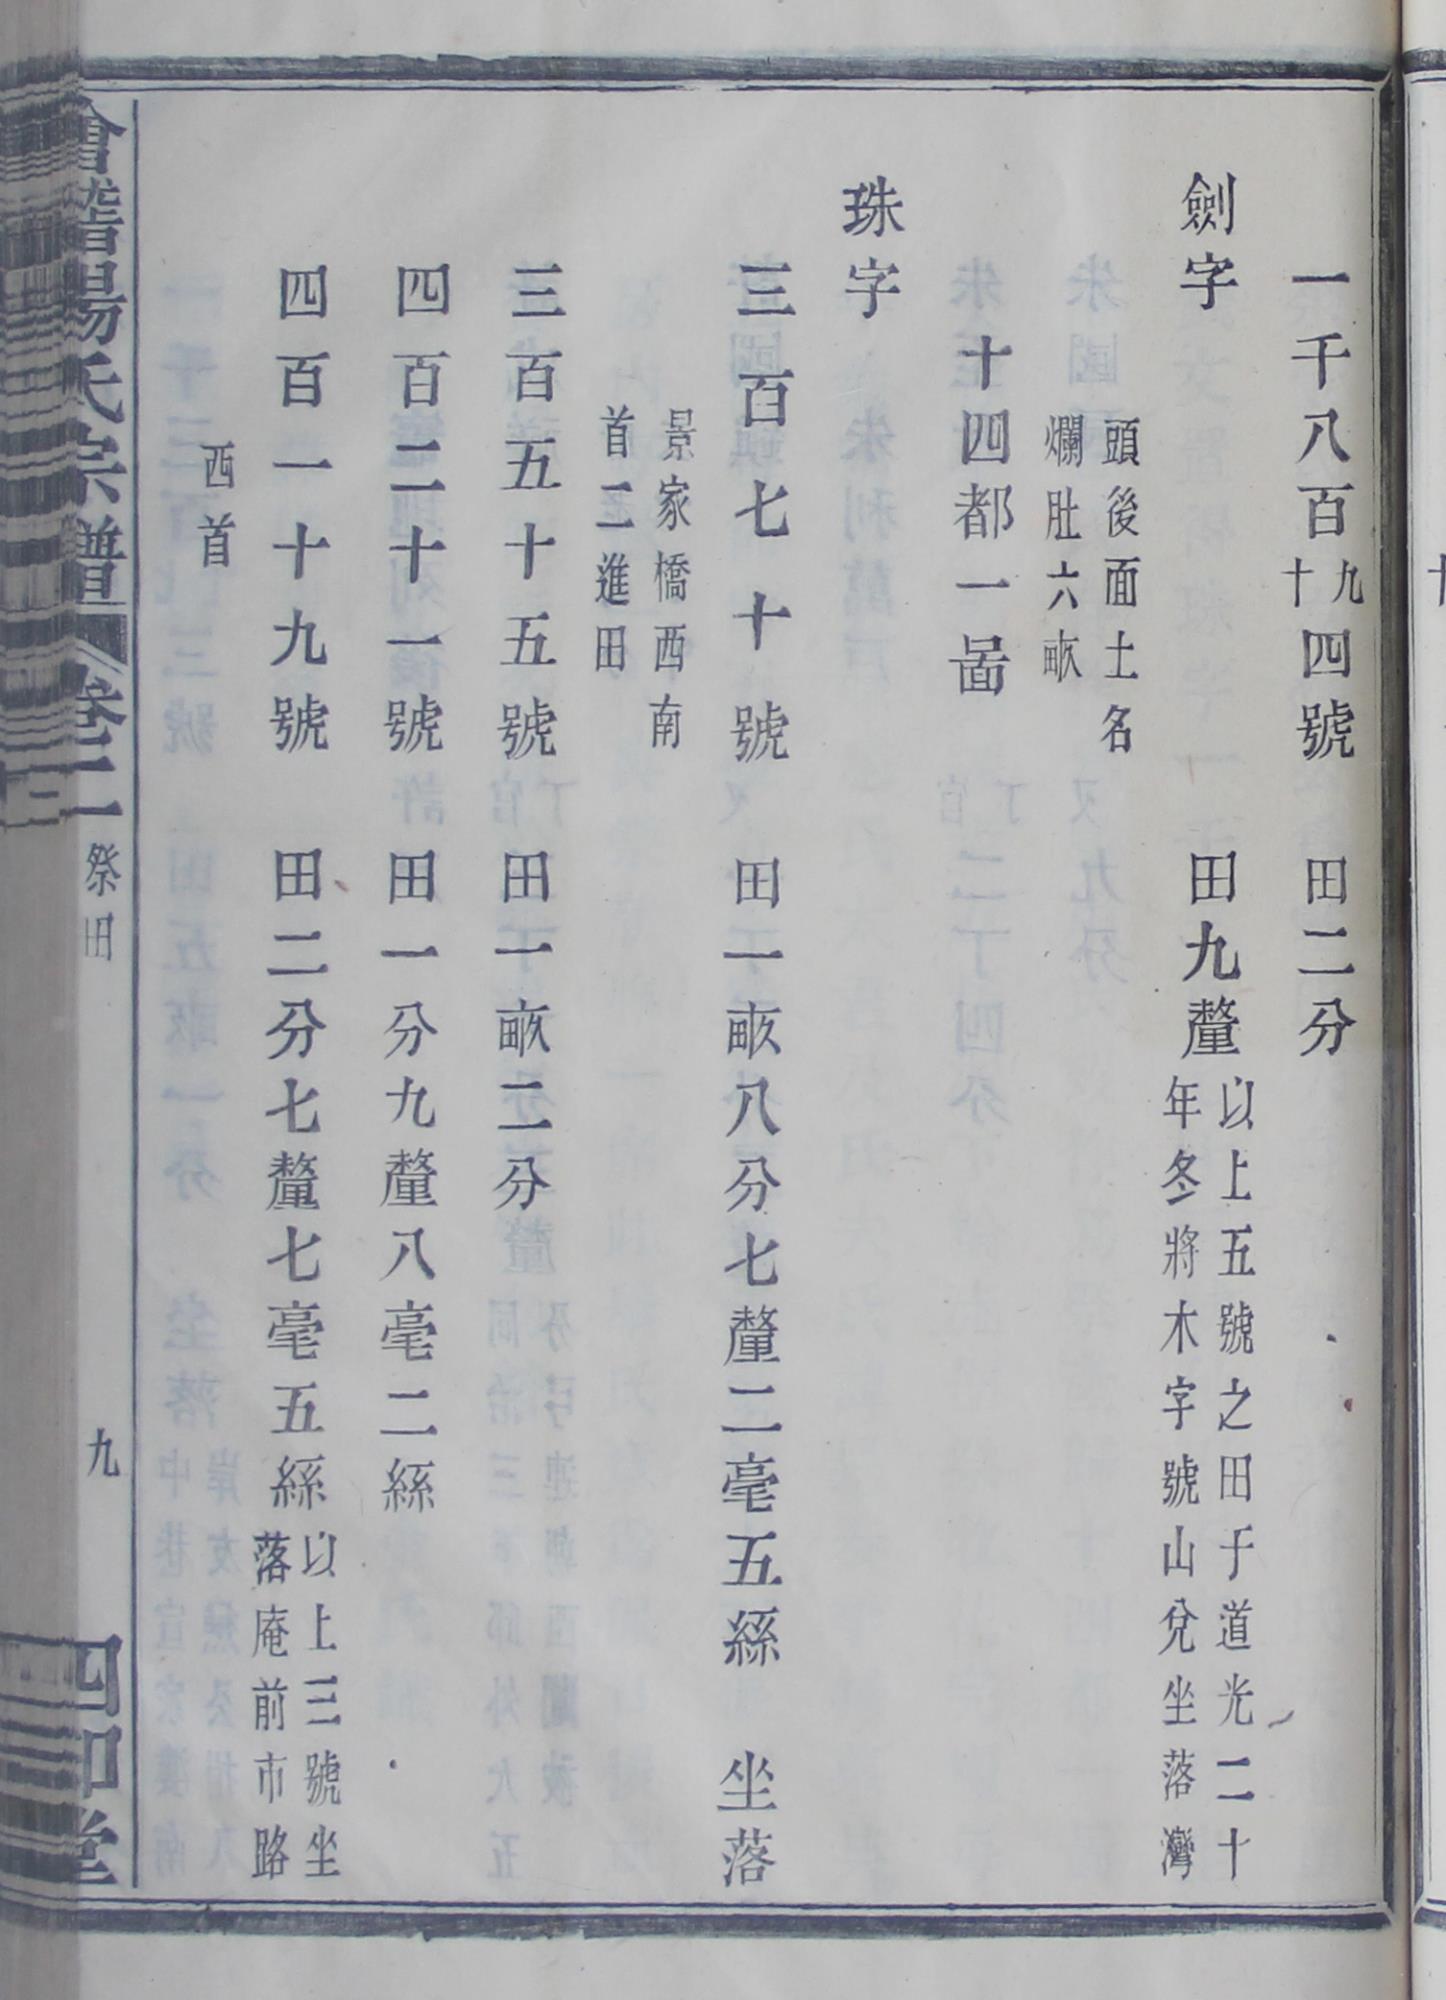 一千八百九十四號　田二分
劍字　田九釐以上五號之田于道光二十年冬將木字號山兌坐落灣
頭後面土名
爛肚六畝
十四都一啚
珠字
三百七十號　田一畝八分七釐二毫五絲　坐落
景家橋西南
首二進田
三百五十五號　田一畝二分
四百二十一號　田一分九釐八毫二絲
四百一十九號　田二分七釐七毫五絲以上三號坐落庵前市路
西首
會稽陽氏宗譜　卷二　祭田　九　四知堂